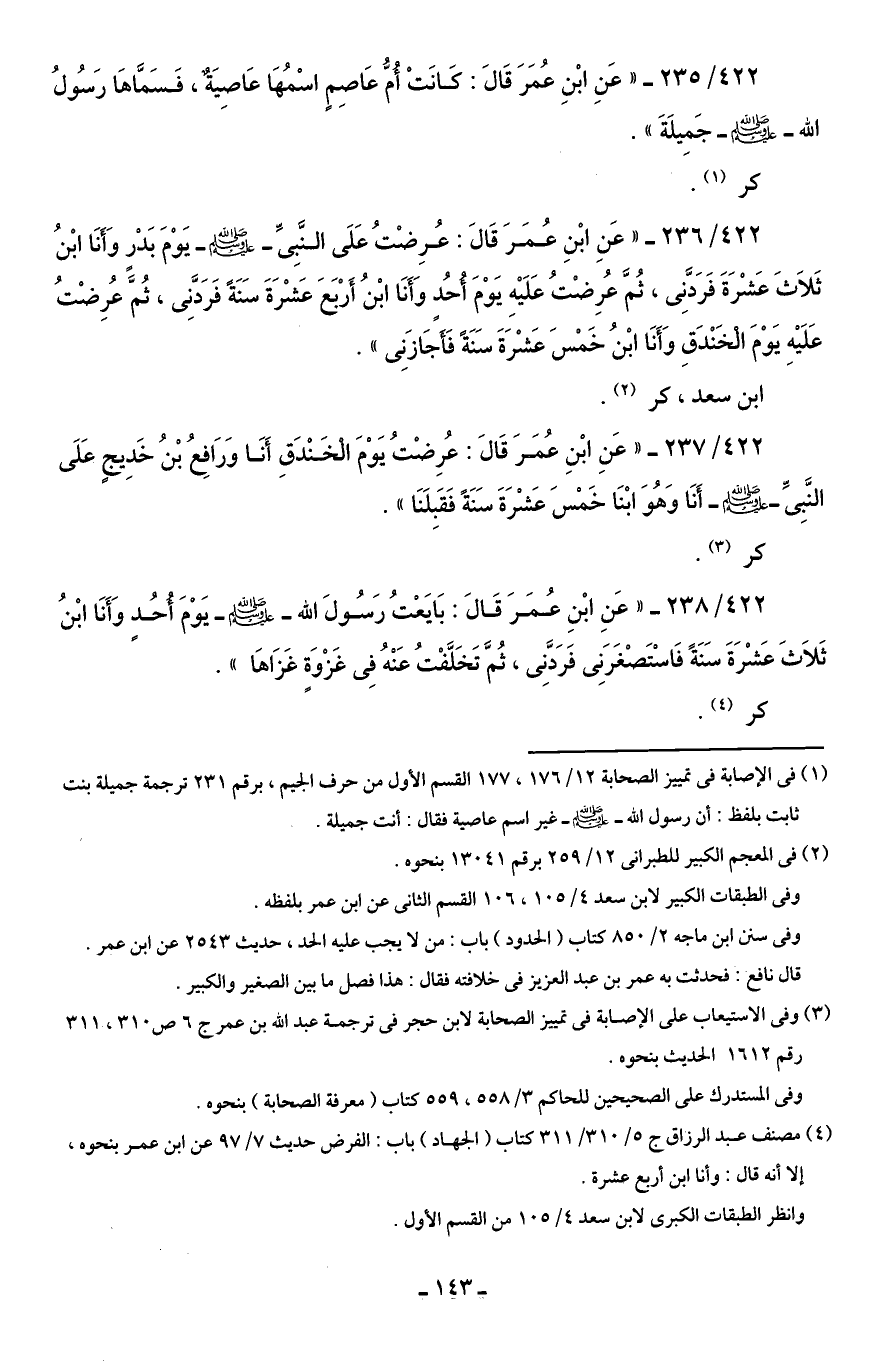 ٤٢٢/ ٢٣٥ ـ « عَنِ ابْنِ عُمَرَ قَالَ : كَـانَتْ أُمُّ عَاصِمٍ اسْمُهَا عَاصِيَةٌ ، فَـسَمَّاهَا رَسُولُ
الله ـ ﷺ ـ جَمِيلَةَ » .
كر (١) .
٤٢٢/ ٢٣٦ ـ « عَنِ ابْنِ عُـمَـرَ قَالَ : عُـرِضْتُ عَلَى الـنَّبِىِّ ـ ﷺ ـ يَوْمَ بَدْرٍ وَأَنَا ابْنُ
ثَلَاثَ عَشْرَةَ فَرَدَّنِى ، ثُمَّ عُرِضْتُ عَلَيْهِ يَوْمَ أُحُدٍ وَأَنَا ابْنُ أَرْبَعَ عَشْرَةَ سَنَةً فَرَدَّنِى ، ثُمَّ عُرِضْتُ
عَلَيْهِ يَوْمَ الْخَنْدَقِ وَأَنَا ابْنُ خَمْسَ عَشْرَةَ سَنَةً فَأَجَازَنِى » .
ابن سعد ، كر (٢) .
٤٢٢/ ٢٣٧ ـ « عَنِ ابْنِ عُمَـرَ قَالَ : عُرِضْتُ يَوْمَ الْخَـنْدَقِ أَنَـا وَرَافِعُ بْنُ خَدِيجٍ عَلَى
النَّبِىِّ ـ ﷺ ـ أَنَا وَهُوَ ابْنَا خَمْسَ عَشْرَةَ سَنَةً فَقَبِلَنَا » .
كر (٣) .
٤٢٢/ ٢٣٨ ـ « عَنِ ابْنِ عُـمَـرَ قَـالَ : بَايَعْتُ رَسُـولَ الله ـ ﷺ ـ يَوْمَ أُحُـدٍ وَأَنَا ابْنُ
ثَلَاثَ عَشْرَةَ سَنَةً فَاسْتَصْغَرَنِى فَرَدَّنِى ، ثُمَّ تَخَلَّفْتُ عَنْهُ فِى غَزْوَةٍ غَزَاهَا » .
كر (٤) .
(١) فى الإصابة فى تمييز الصحابة ١٢/ ١٧٦ ، ١٧٧ القسم الأول من حرف الجيم ، برقم ٢٣١ ترجمة جميلة بنت
ثابت بلفظ : أن رسول الله ـ ﷺ ـ غير اسم عاصية فقال : أنت جميلة .
(٢) فى المعجم الكبير للطبرانى ١٢/ ٢٥٩ برقم ١٣٠٤١ بنحوه .
وفى الطبقات الكبير لابن سعد ٤/ ١٠٥ ، ١٠٦ القسم الثانى عن ابن عمر بلفظه .
وفى سنن ابن ماجه ٢/ ٨٥٠ كتاب ( الحدود ) باب : من لا يجب عليه الحد ، حديث ٢٥٤٣ عن ابن عمر .
قال نافع : فحدثت به عمر بن عبد العزيز فى خلافته فقال : هذا فصل ما بين الصغير والكبير .
(٣) وفى الاستيعاب على الإصـابة فى تمييز الصحابة لابن حجر فى ترجمـة عبد الله بن عمر ج ٦ ص٣١٠ ، ٣١١
رقم ١٦١٢ الحديث بنحوه .
وفى المستدرك على الصحيحين للحاكم ٣/ ٥٥٨ ، ٥٥٩ كتاب ( معرفة الصحابة ) بنحوه .
(٤) مصنف عبد الرزاق ج ٥/ ٣١٠/ ٣١١ كتاب ( الجهاد ) باب : الفرض حديث ٧/ ٩٧ عن ابن عمـر بنحوه ،
إلا أنه قال : وأنا ابن أربع عشرة .
وانظر الطبقات الكبرى لابن سعد ٤/ ١٠٥ من القسم الأول .
ـ ١٤٣ ـ